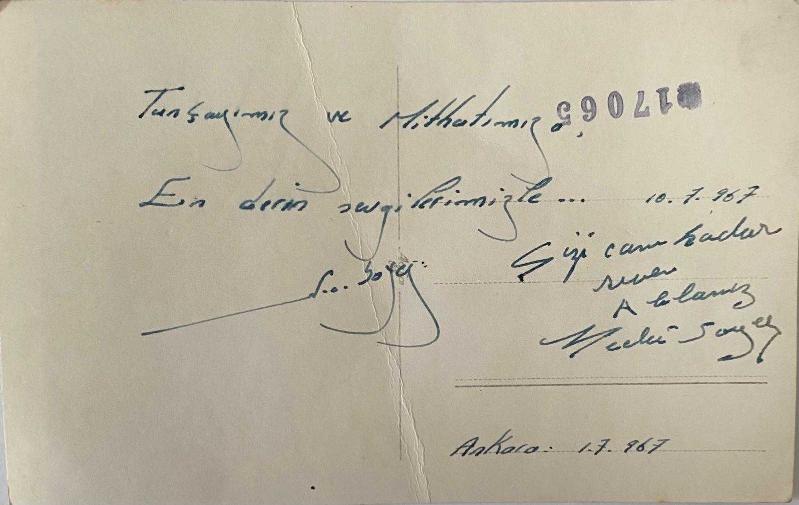 Tunçayımız ve Mithatımıza,
17065
En derin sevgilerimizle...
10.7.967
Sizi canı kadar
seven
Ablanız
Soyer
Ankara: 1.7.967